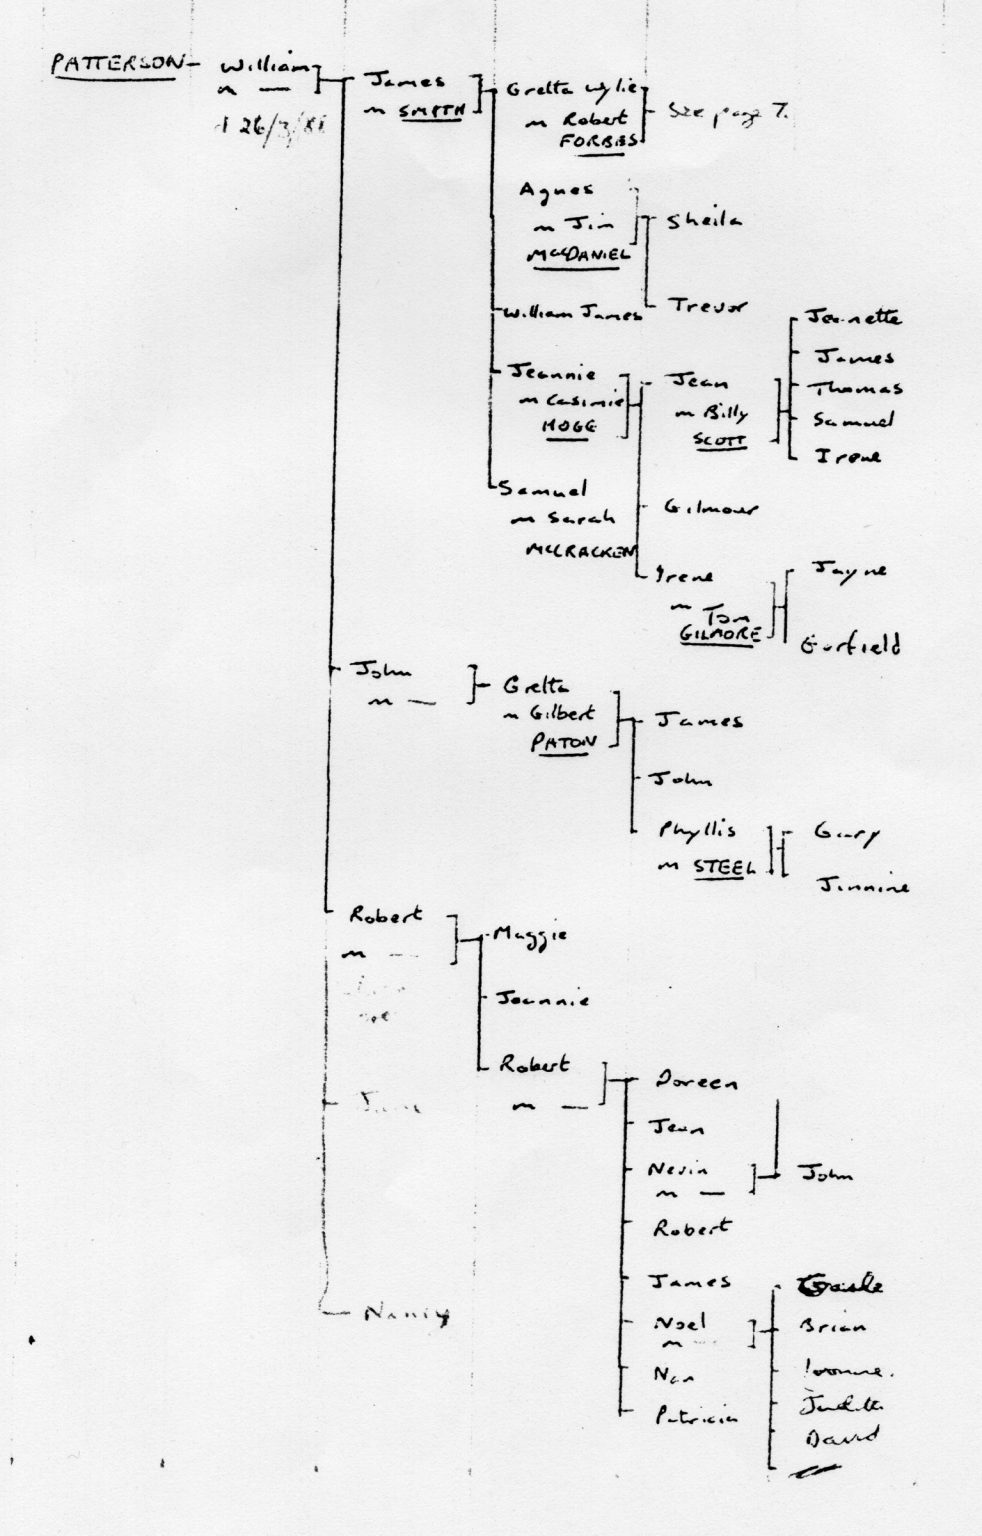 PATTERSON - William
m —
d 26/3/
James
m SMITH
Gretta Wylie
m Robert
FORBES
See page 7.
Agnes
m Jim
McDANIEL
Sheila
Trevor
William James
Jeannie
m Casimie
HOGE
Jean
m Billy
SCOTT
Jeanette
James
Thomas
Samuel
Irene
Samuel
m Sarah
McCRACKEN
Gilmour
Irene
m Tom
GILMORE
Jayne
Garfield
John
m —
Gretta
m Gilbert
PATON
James
John
Phyllis
m STEEL
Gary
Jinnine
Robert
m —
Maggie
Jeannie
Robert
m —
Doreen
Jean
Nevin
m —
John
Robert
James
Noel
m —
Nan
Patricia
Brian
Ivonne.
Judith
David
Nancy